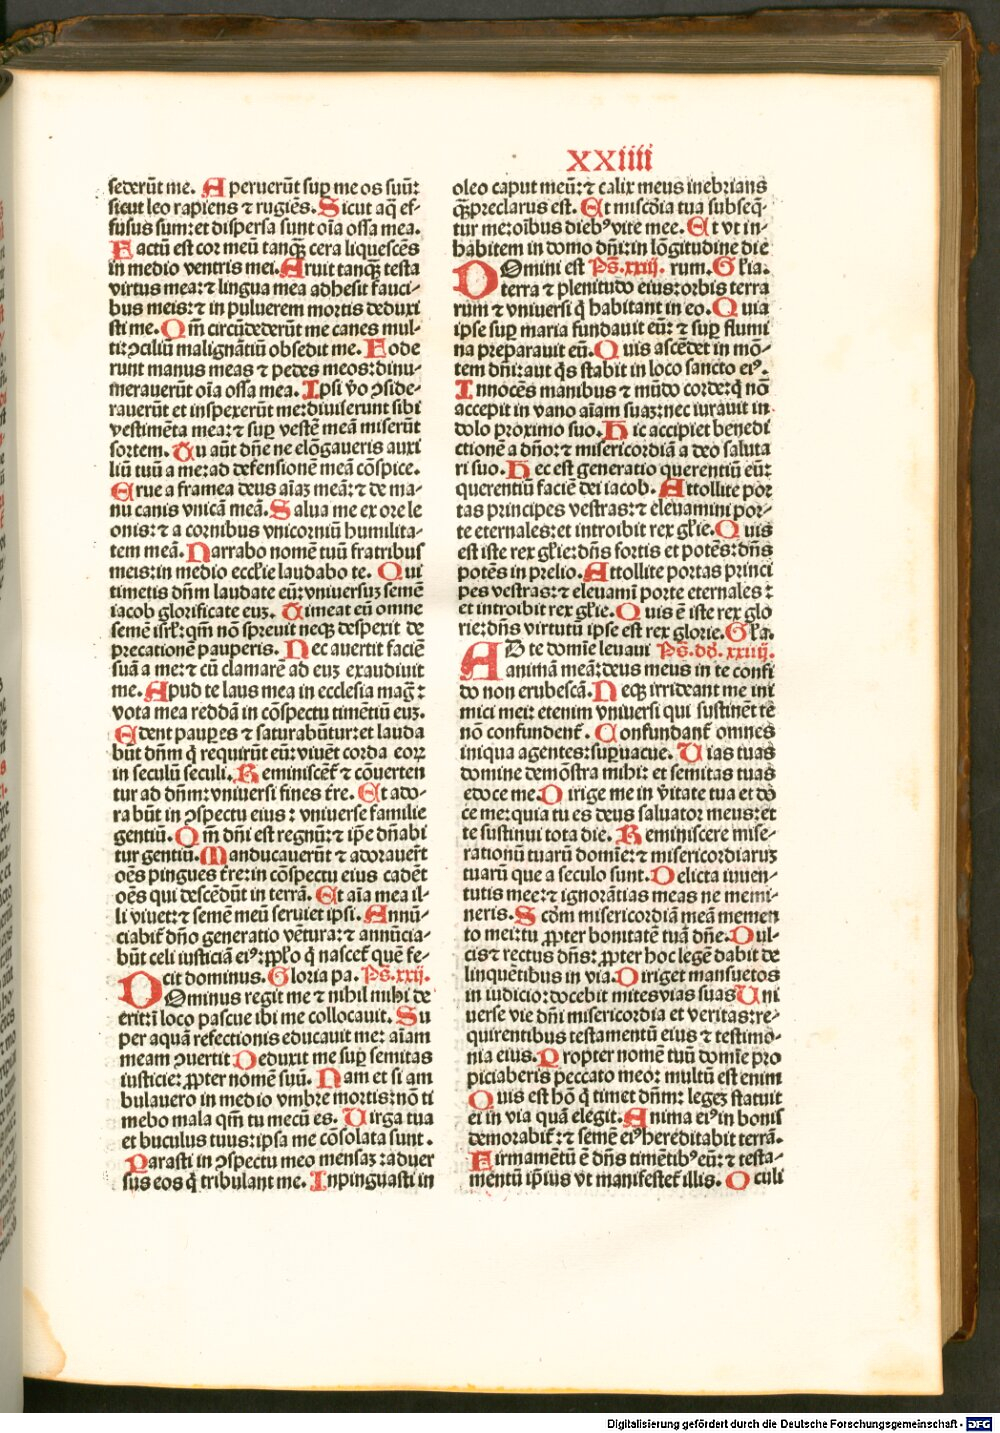 XXIIII
sederūt me. Aperuerūt suꝑ me os suū:
sicut leo rapiens ⁊ rugiēs. Sicut aq̄ ef-
fusus sum: et dispersa sunt oīa ossa mea.
Factū est cor meū tanqꝫ cera liquescēs
in medio ventris mei. Aruit tanqꝫ testa
virtus mea: ⁊ lingua mea adhesit fauci-
bus meis: ⁊ in puluerem mortis deduxi
sti me. Qm̄ circūdederūt me canes mul-
ti: ꝯciliū malignātiū obsedit me. Fode
runt manus meas ⁊ pedes meos: dinu-
merauerūt oīa ossa mea. Ipsi ṽo ꝯside-
rauerūt et inspexerūt me: diuiserunt sibi
vestimēta mea: ⁊ suꝑ vestē meā miserūt
sortem. Tu aūt dn̄e ne elōgaueris auxi
liū tuū a me: ad defensionē meā cōspice.
Erue a framea deus aīaꝫ meā: ⁊ de ma-
nu canis vnicā meā. Salua me ex ore le
onis: ⁊ a cornibus vnicorniū humilita-
tem meā. Narrabo nomē tuū fratribus
meis: in medio eccl̄ie laudabo te. Qui
timetis dn̄m laudate eū: vniuersuꝫ semē
iacob glorificate euꝫ. Timeat eū omne
semē isrl̄: qm̄ nō spreuit neqꝫ despexit de
precationē pauperis. Nec auertit faciē
suā a me: ⁊ cū clamarē ad euꝫ exaudiuit
me. Apud te laus mea in ecclesia mag̃:
vota mea reddā in cōspectu timētiū euꝫ.
Edent pauꝑes ⁊ saturabūtur: et lauda
būt dn̄m q̇ requirūt eū: viuēt corda eoꝝ
in seculū seculi. Reminiscēt̄ ⁊ cōuerten
tur ad dn̄m: vniuersi fines t̄re. Et ado-
rabūt in ꝯspectu eius: vniuerse familie
gentiū. Qm̄ dn̄i est regnū: ⁊ ip̄e dn̄abi
tur gentiū. Manducauerūt ⁊ adorauer̄t
oēs pingues t̄re: in cōspectu eius cadēt
oēs qui descēdūt in terrā. Et aīa mea il-
li viuet: ⁊ semē meū seruiet ipsi. Annū-
ciabit̄ dn̄o generatio vētura: ⁊ annūcia-
būt celi iusticiā eiꝰ: ppl̄o q̇ nascet̄ quē fe-
cit dominus. Gloria pa. Ps̄. xxij.
DOminus regit me ⁊ nihil mihi de
erit: ī loco pascue ibi me collocauit. Su
per aquā refectionis educauit me: aīam
meam ꝯuertit Deduxit me suꝑ semitas
iusticie: ꝓpter nomē suū. Nam et si am
bulauero in medio vmbre mortis: nō ti
mebo mala qm̄ tu mecū es. Virga tua
et buculus tuus: ipsa me cōsolata sunt.
Parasti in ꝯspectu meo mensaꝫ: aduer
sus eos q̇ tribulant me. Inpinguasti in
oleo caput meū: ⁊ calix meus inebrians
qꝫ preclarus est. Et miscd̄ia tua subseq̄-
tur me: oībus diebꝰ vite mee. Et vt in-
habitem in domo dn̄i: in lōgitudine die
DOmini est Ps̄. xxiij. rum. Gl̄ia.
terra ⁊ plenitudo eius: orbis terra
rum ⁊ vniuersi q̇ habitant in eo. Quia
ipse suꝑ maria fundauit eū: ⁊ suꝑ flumi
na preparauit eū. Quis ascēdet in mō-
tem dn̄i: aut q̇s stabit in loco sancto eiꝰ.
Innocēs manibus ⁊ mūdo corde: q̇ nō
accepit in vano aīam suaꝫ: nec iurauit in
dolo proximo suo. Hic accipiet benedi
ctionē a dn̄o: ⁊ misericordiā a deo saluta
ri suo. Hec est generatio querentiū eū:
querentiū faciē dei iacob. Attollite por
tas principes vestras: ⁊ eleuamini por-
te eternales: et introibit rex gl̄ie. Quis
est iste rex gl̄ie: dn̄s fortis et potēs: dn̄s
potēs in prelio. Attollite portas princi
pes vestras: ⁊ eleuamī porte eternales:
et introibit rex gl̄ie. Quis ē iste rex glo
rie: dn̄s virtutū ipse est rex glorie. Gl̄a.
AD te domīe leuaui Ps̄. dd̄. xxiiij.
animā meā: deus meus in te confi
do non erubescā. Neqꝫ irrideant me ini
mici mei: etenim vniuersi qui sustinēt te
nō confundent̄. Confundant̄ omnes
iniqua agentes: suꝑuacue. Vias tuas
domine demōstra mihi: et semitas tuas
edoce me. Dirige me in ṽitate tua et do
ce me: quia tu es deus saluator meus: et
te sustinui tota die. Reminiscere mise-
rationū tuarū domīe: ⁊ misericordiaruꝫ
tuarū que a seculo sunt. Delicta iuuen-
tutis mee: ⁊ ignorātias meas ne memi-
neris. Scd̄m misericordiā meā memen
to mei: tu ꝓpter bonitatē tuā dn̄e. Dul-
cis ⁊ rectus dn̄s: ꝓpter hoc legē dabit de
linquētibus in via. Diriget mansuetos
in iudicio: docebit mites vias suas Uni
uerse vie dn̄i misericordia et veritas: re-
quirentibus testamentū eius ⁊ testimo-
nia eius. Propter nomē tuū domīe pro
piciaberis peccato meo: multū est enim
Quis est hō q̇ timet dn̄m: legeꝫ statuit
ei in via quā elegit. Anima eiꝰ in bonis
demorabit̄: ⁊ semē eiꝰ hereditabit terrā.
Firmamētū ē dn̄s timētibꝰ eū: ⁊ testa-
mentū ip̄ius vt manifestet̄ illis. Oculi
Digitalisierung gefördert durch die Deutsche Forschungsgemeinschaft - DFG